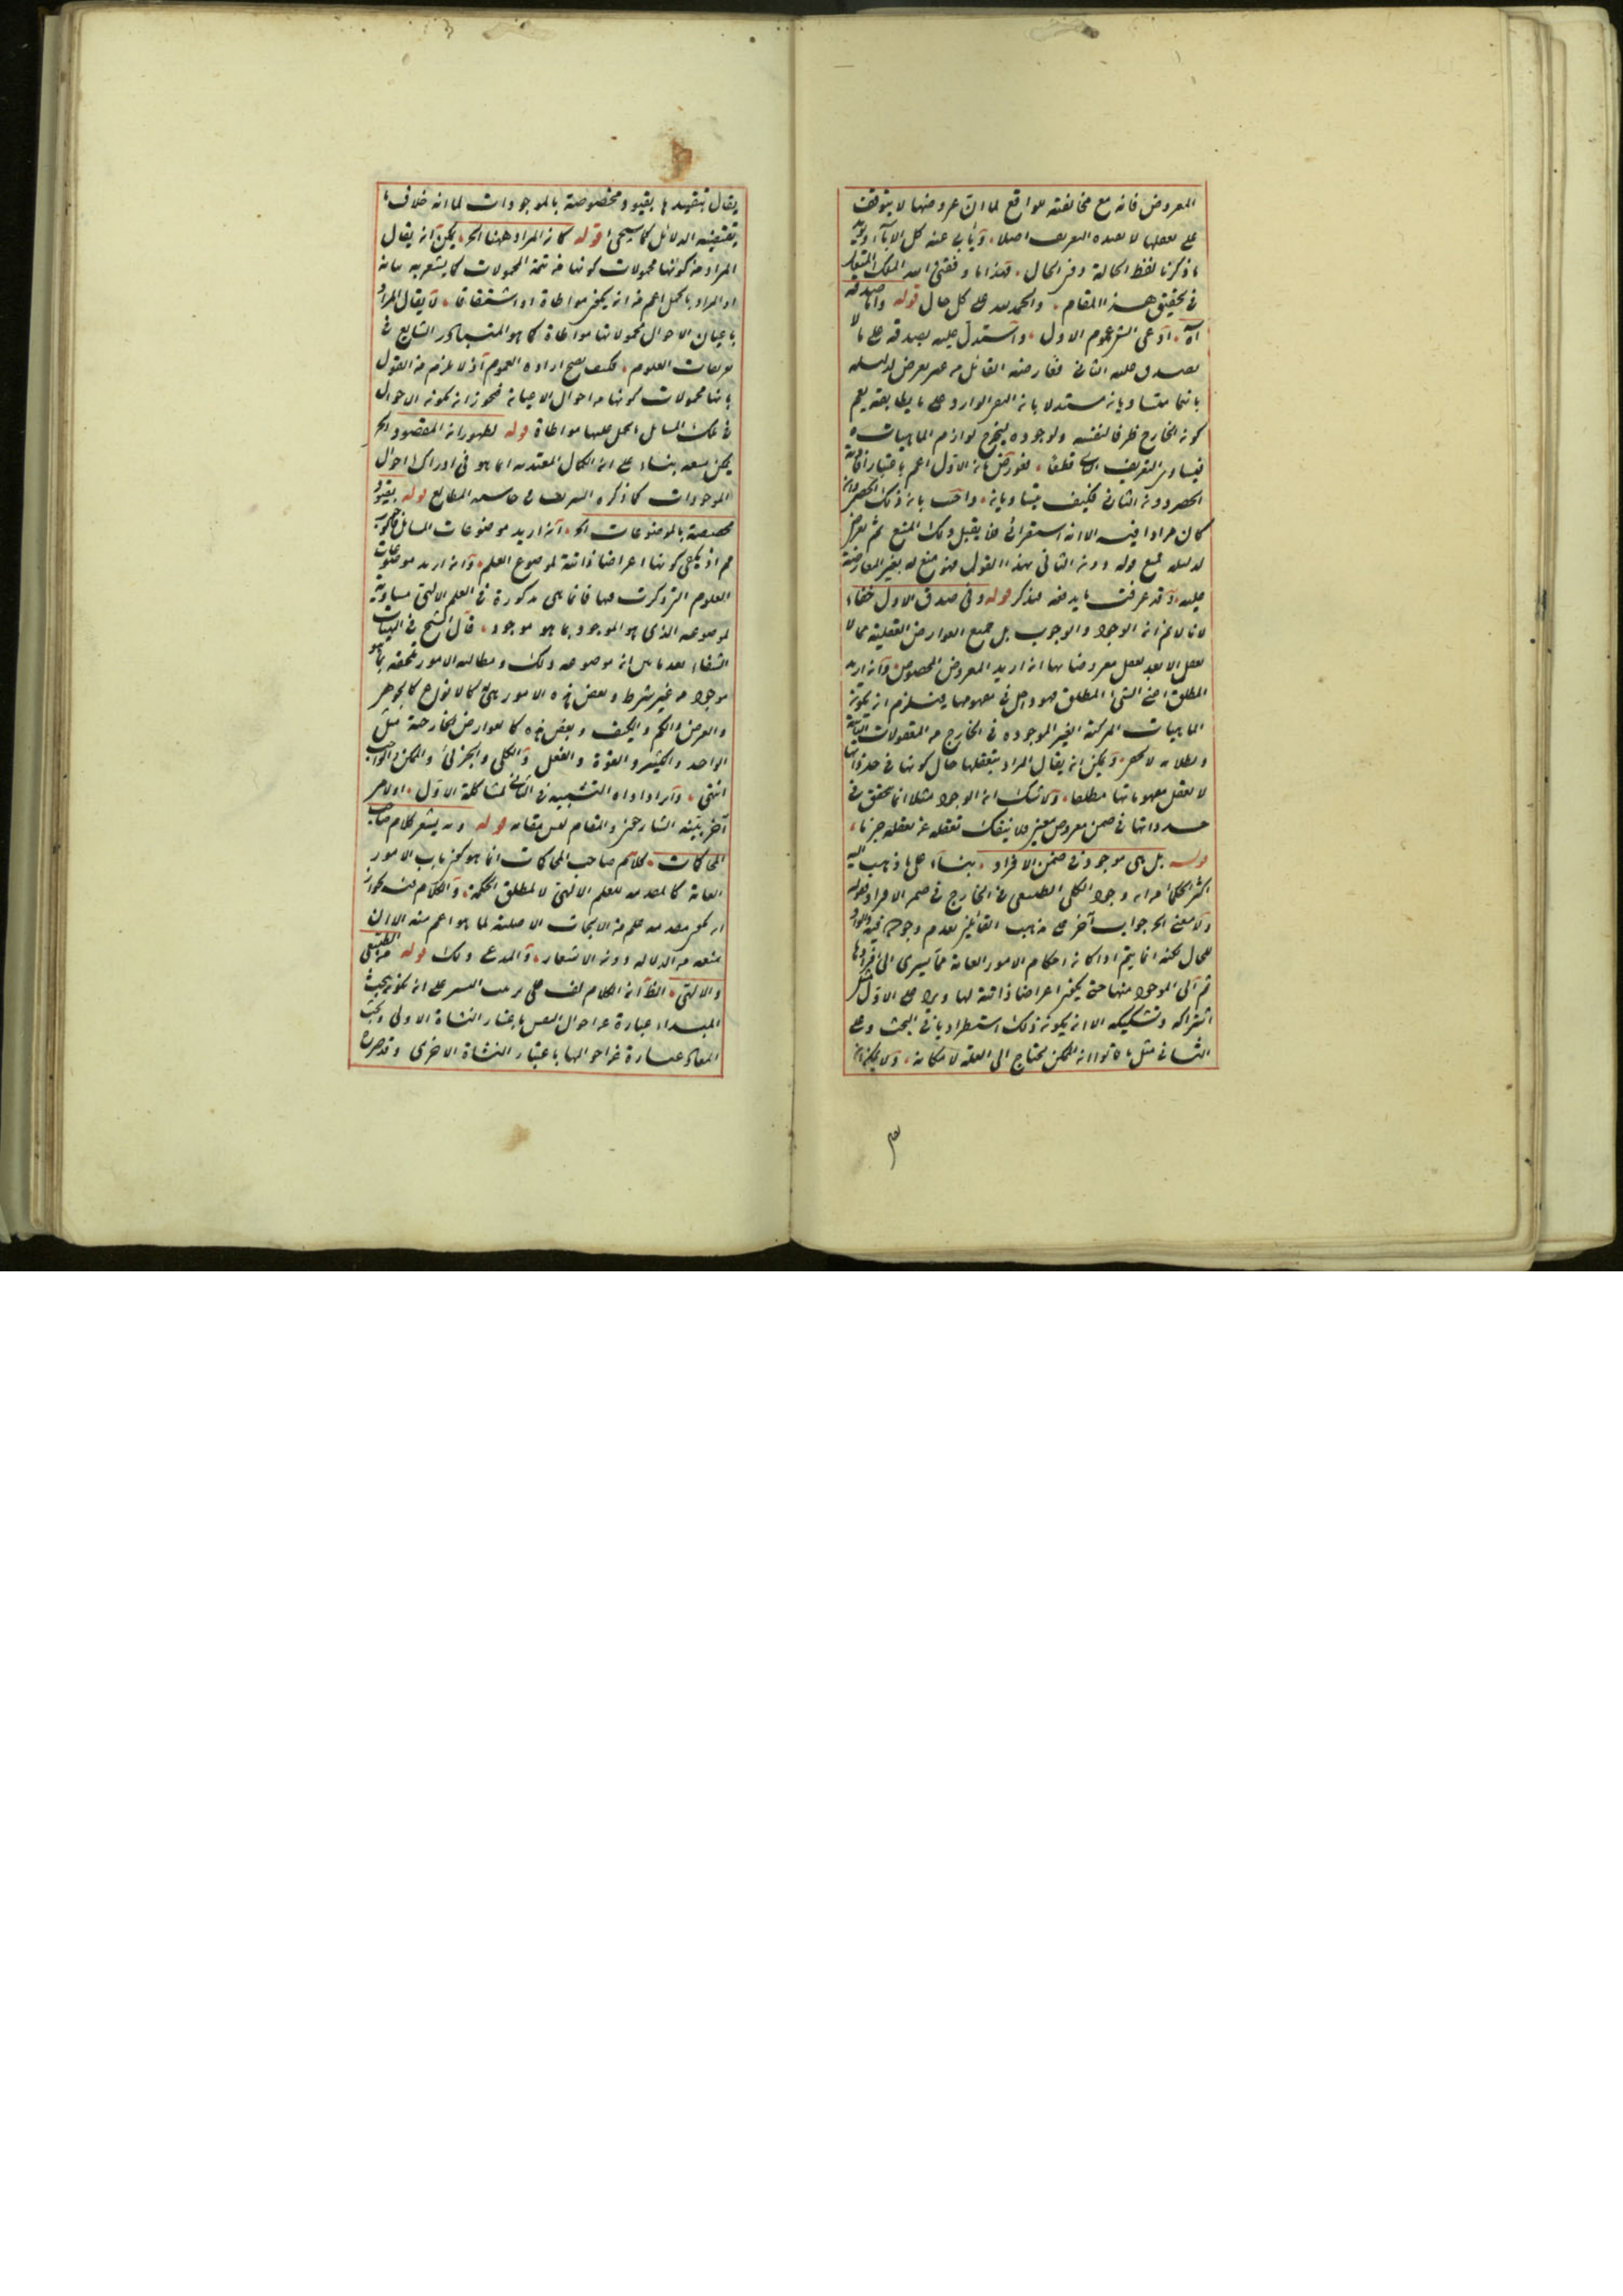 المعروض فانه مع مخالفته للواقع لما ان عروضها لا يتوقف
على تعقلها لا تفيده التعريف اصلا، ويأبى عنه كل الاباء
ما ذكرنا لفظ الحالة دون الحال، فهذا ما وفقني الله الملك المتعال
في تحقيق هذا المقام، والحمد لله على كل حال قوله واما صدقه
آه، ادعى عموم الاول، واستدل عليه بصدقه على ما لا
يصدق عليه الثاني فعارضه القائل من غير تعرض لدليله
بانهما متساويان مستدلا بان الوارد على ما يطابقه
كون الخارج ظرفا لنفسه ولوجوده ليخرج لوازم الماهيات
فيساوى التعريف قطعا، بان الاول اعم باعتبار
الحصر دون الثاني فكيف يتساويان، واجيب بان ذلك الحصر
كان مرادا فيه الا انه استقرائى فلا يقبل ذلك المنع ثم تعرض
لدليله بمنع قوله دون الثاني بهذا القول فهو منع له بغير المعارضة
عليه، وقد عرفت ما يدفعه فتذكر قوله وفى صدق الاول خفاء
لانا لا نم ان الوجود والوجوب بل جميع العوارض العقلية مما لا
يعقل الا بعد تعقل معروضاتها ان اريد المعروض المخصوص وان اريد
المطلق اعنى الشئ المطلق فهو داخل فى مفهومها فيلزم ان يكون
الماهيات المركبة الغير الموجودة فى الخارج من المعقولات الثانية
وبطلانه لا يخفى، ويمكن ان يقال المراد بتعقلها حال كونها فى
لا تعقل مفهوماتها مطلقا، ولا شك ان الوجود مثلا انما يتحقق فى
حد ذاتها فى ضمن معروض معين ولا ينفك تعقله عن تعقله جزما،
قوله بل هى موجودة فى ضمن الافراد، بناء على ما ذهب اليه
اكثر الحكماء من ان وجود الكلى الطبيعى فى الخارج فى ضمن الافراد وقوله
ولا معنى الخ جواب آخر على مذهب القائلين بعدم وجوده فيه
للحال لكنه انما يتم اذا كان احكام الامور العامة مما يسرى الى افرادها
ثم الى الموجود منها حتى يكون اعراضا ذاتية لها ويرد على الاول مثل
اشتراكه وتشكيكه الا ان يكون ذلك استطراديا فى البحث وعلى
الثانى مثل ما قالوا ان الممكن يحتاج الى العلة لامكانه، ولا يمكن ان
يقال بتقييدها بقيود مخصوصة بالموجودات لما انه خلاف ما
يقتضيه الدلائل كما سيجئ قوله كان المراد ههنا الخ، يمكن ان يقال
المراد من كونها محمولات كونها من تتمة المحمولات كما يشعر به بيانه
او المراد بالحمل اعم من ان يكون مواطاة او اشتقاقا، لا يقال المراد
باعيان الاحوال محمولاتها مواطاة كما هو المتبادر الشايع فى
تعريفات العلوم، فكيف يصح ارادة العموم اذ لا يلزم من القول
بانها محمولات كونها من احوال الاعيان فيجوز ان يكون الاحوال
فى تلك المسائل الحمل عليها مواطاة قوله لظهور ان المقصود الخ
يمكن منعه بناء على ان الكمال المعتد به انما هو فى ادراك احوال
الموجودات كما ذكره الشريف فى حاشية المطالع قوله بقيود
مخصصة بالموضوعات الخ، ان اريد موضوعات المسائل
م اذ يكفى كونها اعراضا ذاتية لموضوع العلم، وان اريد موضوعات
العلوم التى ذكرت فيها فانما هى مذكورة فى العلم الالهى مساوية
لموضوعه الذى هو الموجود بما هو موجود، قال الشيخ فى الهيات
الشفاء بعد ما بين ان موضوعه ذلك ومطالبه الامور تلحقه بما هو
موجود من غير شرط وبعض هذه الامور هى له كالانواع كالجوهر
والعرض والكم والكيف وبعض هذه كالعوارض الخارجية مثل
الواحد والكثير والقوة والفعل والكلى والجزئى والممكن والواجب
انتهى، وايراد اداة التشبيه فى الثانى لمشاكلة الاول، او لامر
آخر بينه الشارحين والمقام ليس مقامه قوله وبه يشعر كلام صاحب
المحاكمات، كلام صاحب المحاكمات انما هو كون باب الامور
العامة كالمقدمة للعلم الالهى لا لمطلق الحكمة، والكلام فيه لجواز
ان يكون مقدمة علم من الابحاث الاصلية لما هو اعم منه الا ان
يمنعه من الدلالة دون الاشعار، والمدعى ذلك قوله من الطبيعى
والالهى، الظ ان الكلام لف على ترتيب النشر على ان يكون بحث
المبدء عبارة عن احوال النفس باعتبار النشاة الاولى وبحث
المعاد عبارة عن احوالها باعتبار النشاة الاخرى وقد صرح